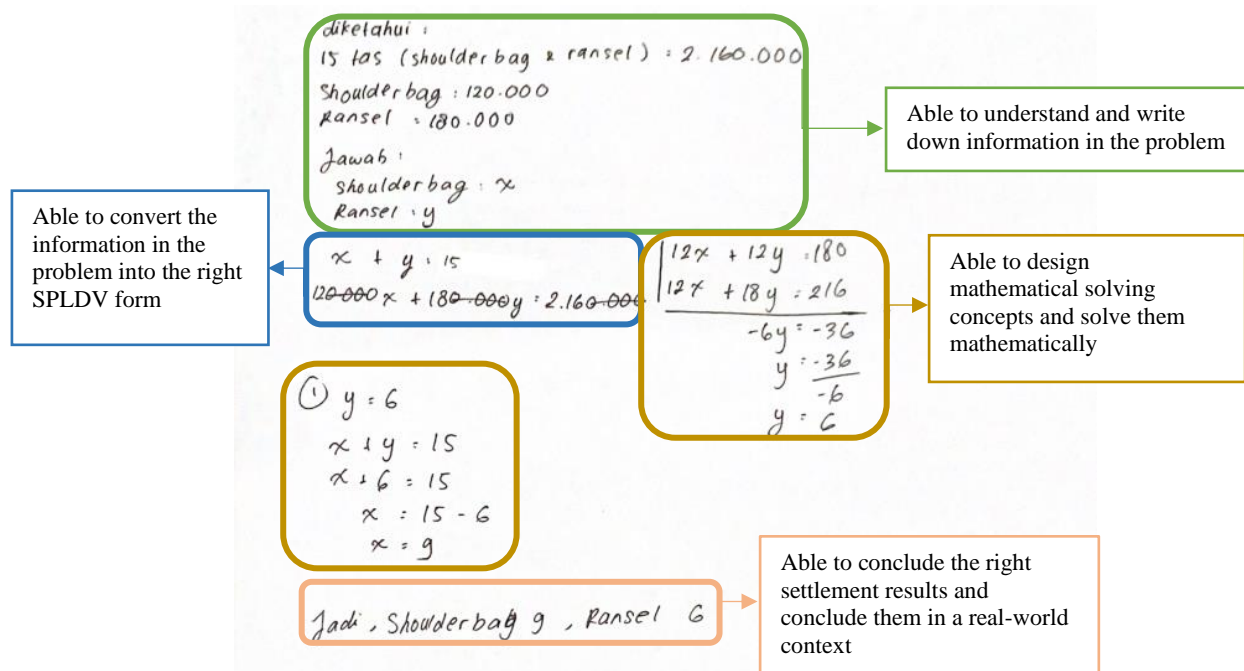 diketahui :
15 tas (shoulder bag & ransel) : 2.160.000
Shoulder bag : 120.000
Ransel : 180.000
Jawab :
shoulderbag : x
Ransel : y
Able to understand and write
down information in the problem
Able to convert the
information in the
problem into the right
SPLDV form
x + y = 15
120.000x + 180.000y = 2.160.000
12x + 12y = 180
12x + 18y = 216
-6y = -36
y = -36
-6
y = 6
Able to design
mathematical solving
concepts and solve them
mathematically
1 y = 6
x + y = 15
x + 6 = 15
x = 15 - 6
x = 9
Jadi, Shoulderbag 9, Ransel 6
Able to conclude the right
settlement results and
conclude them in a real-world
context